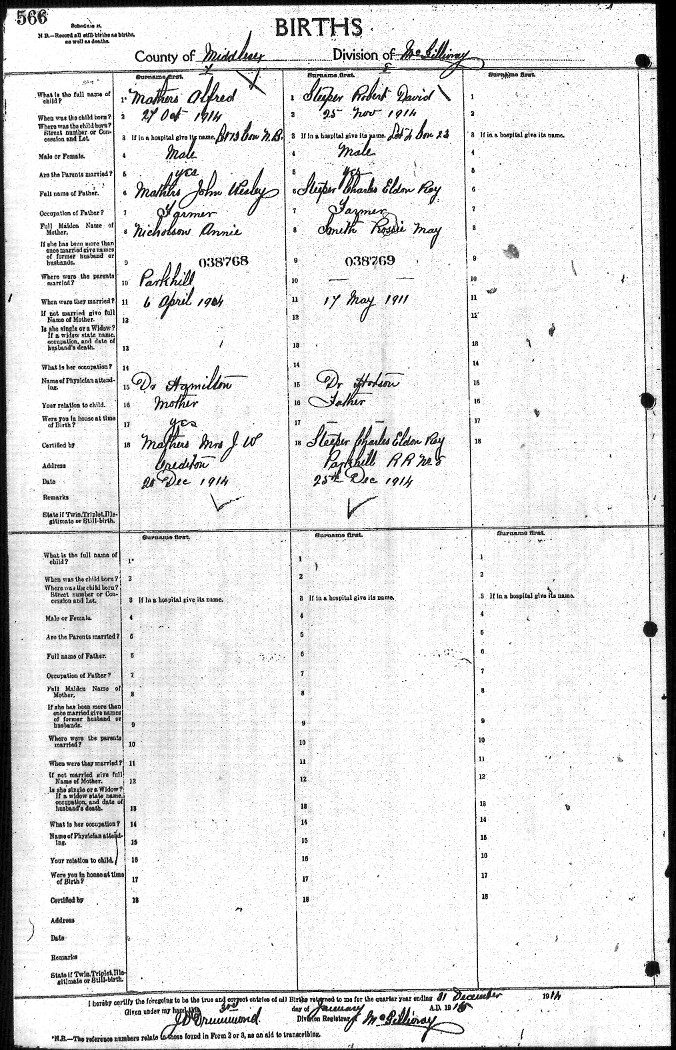 566
BIRTHS
Schedule A.
N.B.—Record all still-births as births, as well as deaths.
County of Middlesex Division of McGillivray
Surname first. Surname first. Surname first.
What is the full name of child? 1 Mathers Alfred 1 Steeper Robert David 1
When was the child born? 2 27 Oct 1914 2 25 Nov 1914 2
Where was the child born? Street number or Concession and Lot. 3 If in a hospital give its name. Lot 13 Con N.B. 3 If in a hospital give its name. Lot 4 Con 23 3 If in a hospital give its name.
Male or Female. 4 Male 4 Male 4
Are the Parents married? 5 yes 5 yes 5
Full name of Father. 6 Mathers John Wesley 6 Steeper Charles Eldon Roy 6
Occupation of Father? 7 Farmer 7 Farmer 7
Full Maiden Name of Mother. 8 Nicholson Annie 8 Smith Rossie May 8
If she has been more than once married give names of former husband or husbands. 9 038768 9 038769 9
Where were the parents married? 10 Parkhill 10 — — 10
When were they married? 11 6 April 1904 11 17 May 1911 11
If not married give full Name of Mother. 12 12 12
Is she single or a Widow? If a widow state name, occupation, and date of husband's death. 13 13
What is her occupation? 14 14 14
Name of Physician attending. 15 Dr Hamilton 15 Dr Hodson 15
Your relation to child. 16 Mother 16 Father 16
Were you in house at time of Birth? 17 yes 17 — — 17
Certified by 18 Mathers Mrs J W 18 Steeper Charles Eldon Roy 18
Address Crediton Parkhill R R No 5
Date 28 Dec 1914 25th Dec 1914
Remarks
State if Twin, Triplet, Illegitimate or Still-birth.
Surname first. Surname first. Surname first.
What is the full name of child? 1 1 1
When was the child born? 2 2 2
Where was the child born? Street number or Concession and Lot. 3 If in a hospital give its name. 3 If in a hospital give its name. 3 If in a hospital give its name.
Male or Female. 4 4 4
Are the Parents married? 5 5 5
Full name of Father. 6 6 6
Occupation of Father? 7 7 7
Full Maiden Name of Mother. 8 8 8
If she has been more than once married give names of former husband or husbands. 9 9 9
Where were the parents married? 10 10 10
When were they married? 11 11 11
If not married give full Name of Mother. 12 12 12
Is she single or a Widow? If a widow state name, occupation, and date of husband's death. 13 13 13
What is her occupation? 14 14 14
Name of Physician attending. 15 15 15
Your relation to child. 16 16 16
Were you in house at time of Birth? 17 17 17
Certified by 18 18 18
Address
Date
Remarks
State if Twin, Triplet, Illegitimate or Still-birth.
I hereby certify the foregoing to be the true and correct entries of all Births returned to me for the quarter year ending 31 December 1914
Given under my hand this 3rd day of January A.D. 1915
J D Drummond. Division Registrar, of McGillivray
*N.B.—The reference numbers relate to those found in Form 2 or 3, as an aid to transcribing.